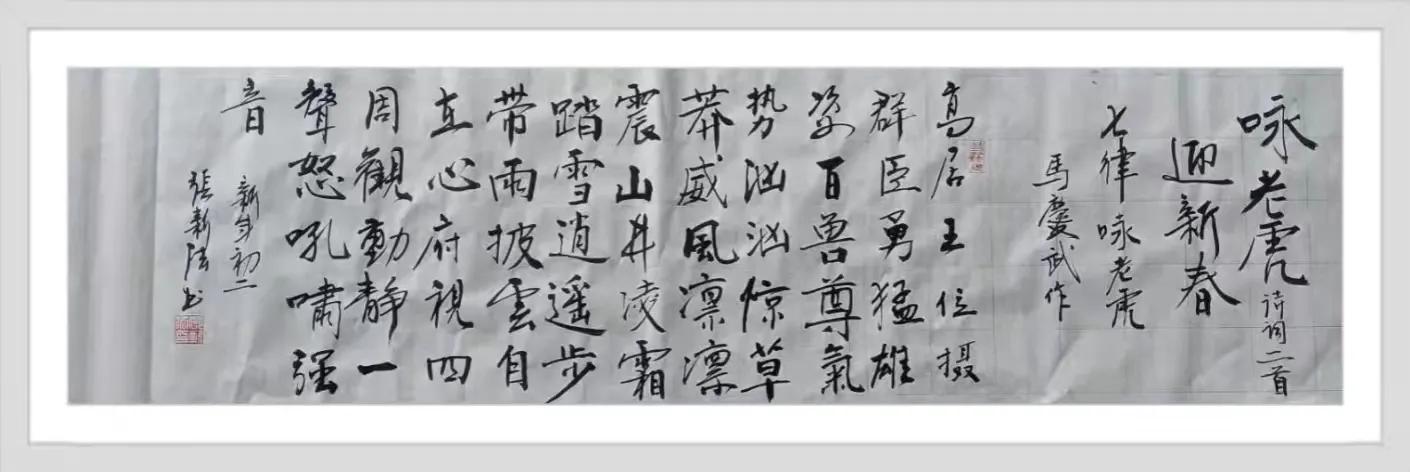 咏老虎诗词二首
迎新春
七律咏老虎
馬慶武作
高居王位摄
群臣勇猛雄
姿百兽尊氣
势汹汹惊草
莽威風凛凛
震山井凌霜
踏雪逍遥步
带雨披雲自
在心府視四
周觀動静一
聲怒吼嘯强
音
新年初二
張新法书